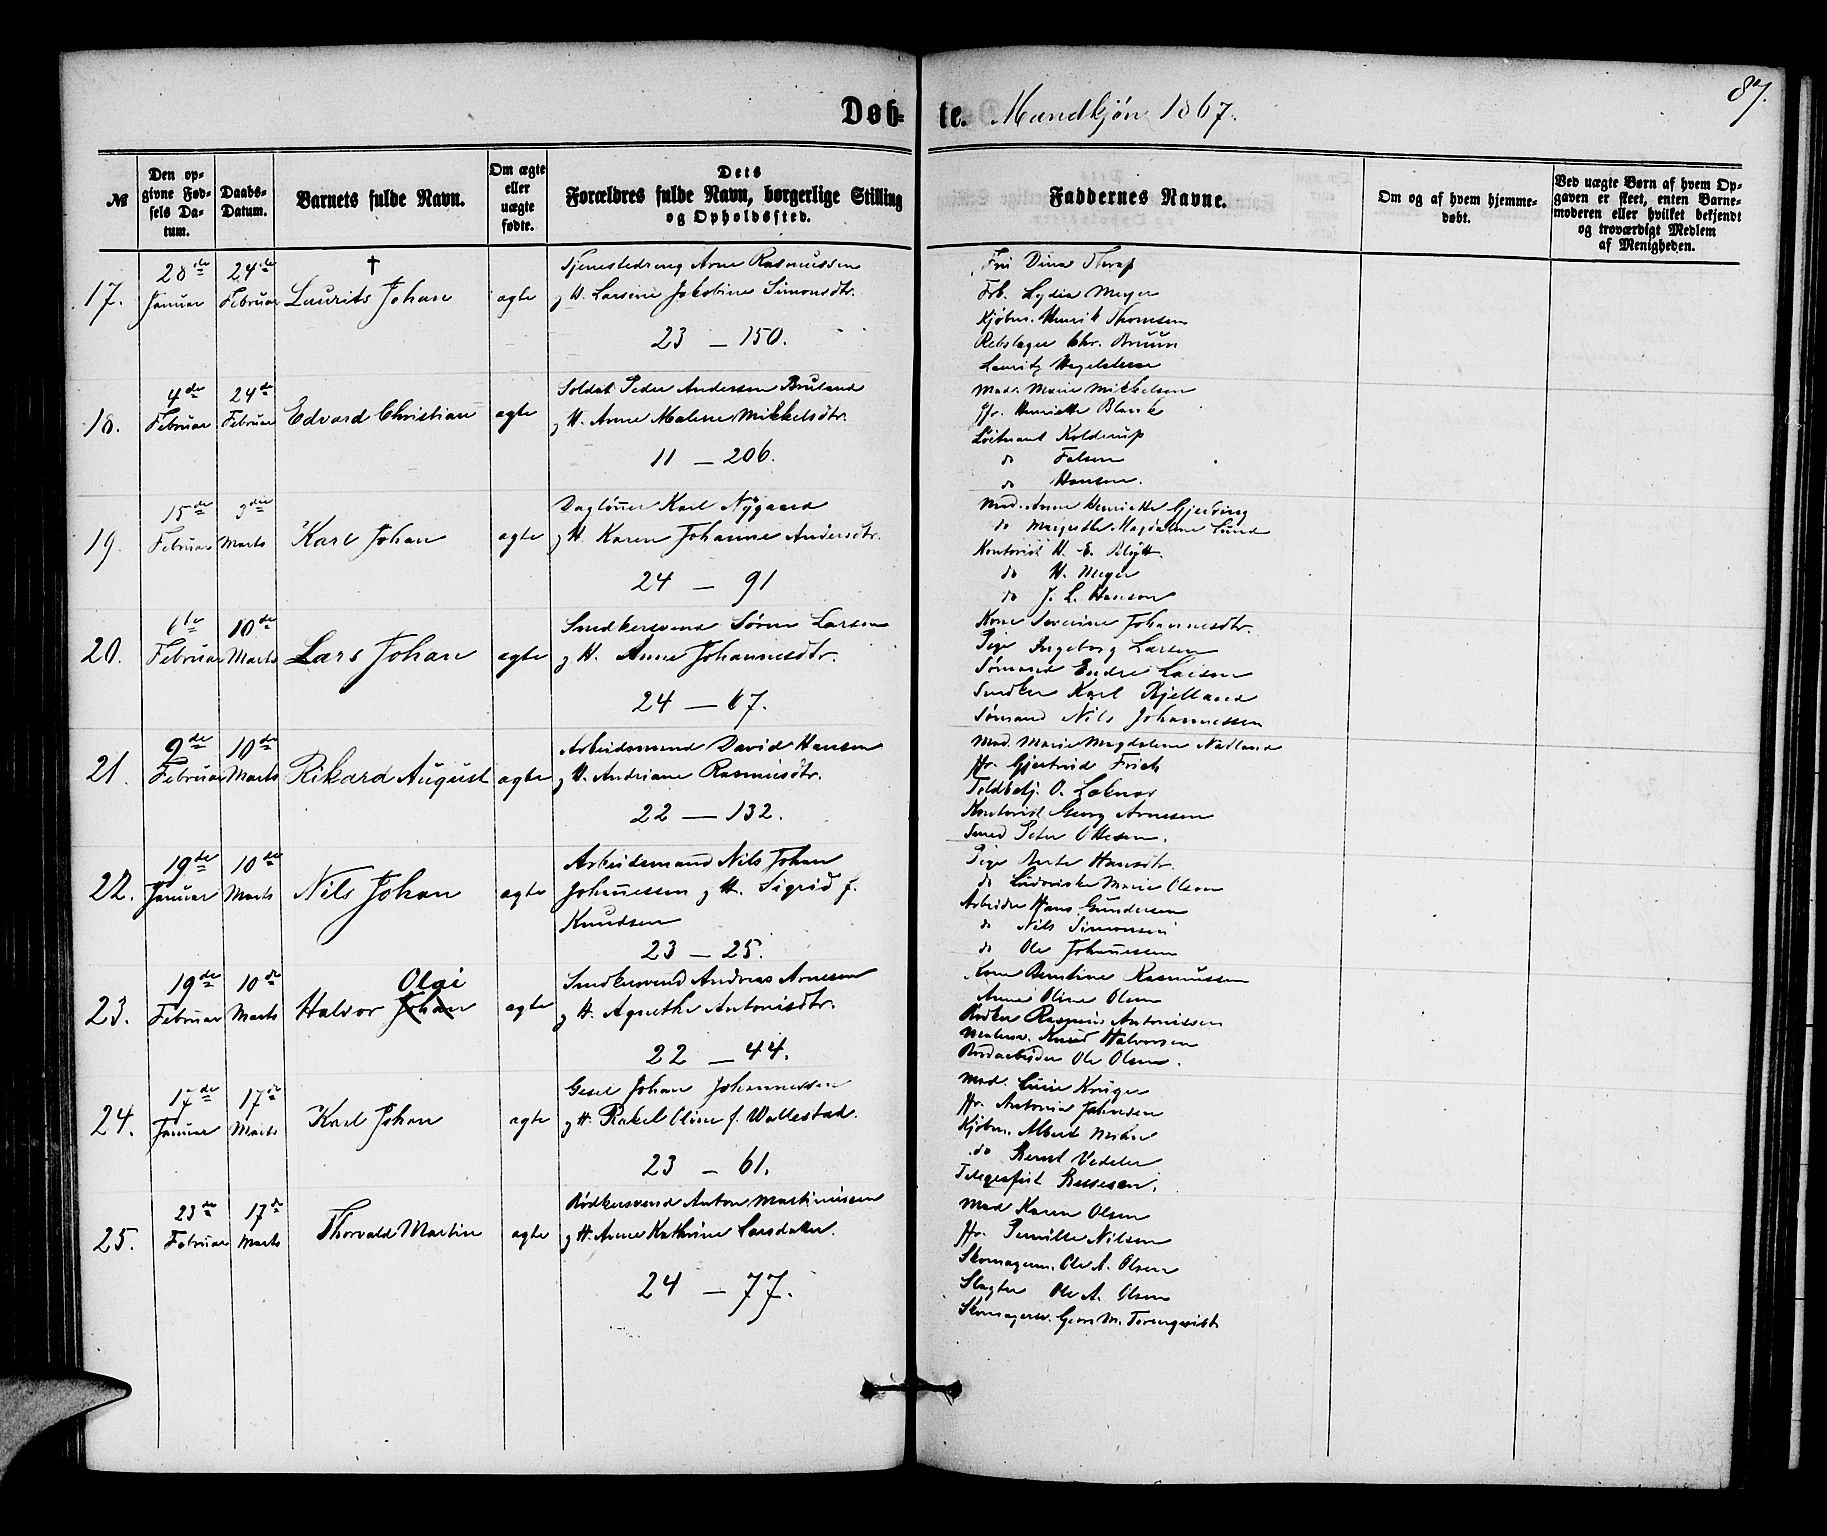 87.
Døb-te. Mandkjøn 1867.
№ | Den opgivne Fødsels Datum. | Daabs-Datum. | Barnets fulde Navn. | Om ægte eller uægte fødte. | Dets Forældres fulde Navn, borgerlige Stilling og Opholdssted. | Faddernes Navne. | Om og af hvem hjemmedøbt. | Ved uægte Børn af hvem Opgaven er skeet, enten Barnemoderen eller hvilket bekjendt og troværdigt Medlem af Menigheden.
17. 28de Januar 24de Februar † Laurits Johan ægte
Tjenestedreng Arne Rasmussen
og H. Larsine Jakobine Simonsdtr.
23 – 150.
Dina
Lydia Meyer
Kjøbm. Henrik Thomsen
Rebslager Chr. Bruun
18. 4de Februar 24de Februar Edvard Christian ægte
Soldat Peder Andersen Bruland
og H. Anne Malene Mikkelsdtr.
11 – 206.
Mad. Marie Mikkelsen
Jfr. Henriette Blanck
Løitnant Kolderup
do Falsen
do Hansen.
19. 15de Februar 3die Marts Karl Johan ægte
Dagløner Karl Nygaard
og H. Karen Johanne Andersdtr.
24 – 91
Mad. Anne Henriette Gjerding
do Margrethe Magdalene Lund
Kontorist H. E. Blytt
do H. Meyer
do J. L. Hanson
20. 6te Februar 10de Marts Lars Johan ægte
Snedkersvend Søren Larsen
og H. Anne Johannesdtr.
24 – 67.
Kone Severine Johannesdtr.
Pige Ingeborg Larsen
Sømand Endre Larsen
Snedker Karl Kjelland
Sømand Nils Johannessen
21. 9de Februar 10de Marts Rikard August ægte
Arbeidsmand David Hansen
og H. Andriane Rasmusdtr.
22 – 132.
Mad. Marie Magdalene Nedland
Jfr. Gjertrud Frich
Toldbetj. O.
Kontorist Georg Arnesen
Smed Peter Ottesen.
22. 19de Januar 10de Marts Nils Johan ægte
Arbeidsmand Nils Johan
Johanessen og H. Sigrid f.
Knudsen
23 – 25.
Pige Hansdtr.
do Marie Olsen
Arbeider Hans Gundersen
do Nils Simonsen
do Ole Johanessen
23. 19de Februar 10de Marts Halvor Johan Olai ægte
Snedkersvend Andreas Arnesen
og H. Agnethe Antonisdtr.
22 – 44.
Kone Berntine Rasmussen
Anne Oline Olsen
Bødker Rasmus Antonissen
Knud Halvorsen
Ole Olsen.
24. 17de Januar 17de Marts Karl Johan ægte
Gesel Johan Johannessen
og H. Rakel Oline f. Wallestad.
23 – 61.
Mad. Kruger
Jfr. Antonia Johnsen
Kjøbm. Albert
do Bernt Vedeler
Telegrafist
25. 23de Februar 17de Marts Thorvald Martin ægte
Bødkersvend Anton Martinussen
og H. Anne Kathrine Larsdatter.
24 – 77.
Mad Karen Olsen
Jfr. Pernille Nilsen
Skomagerm. Ole A. Olsen
Slagter Ole A. Olsen
Skomagersv. Georg M. Torenqvist